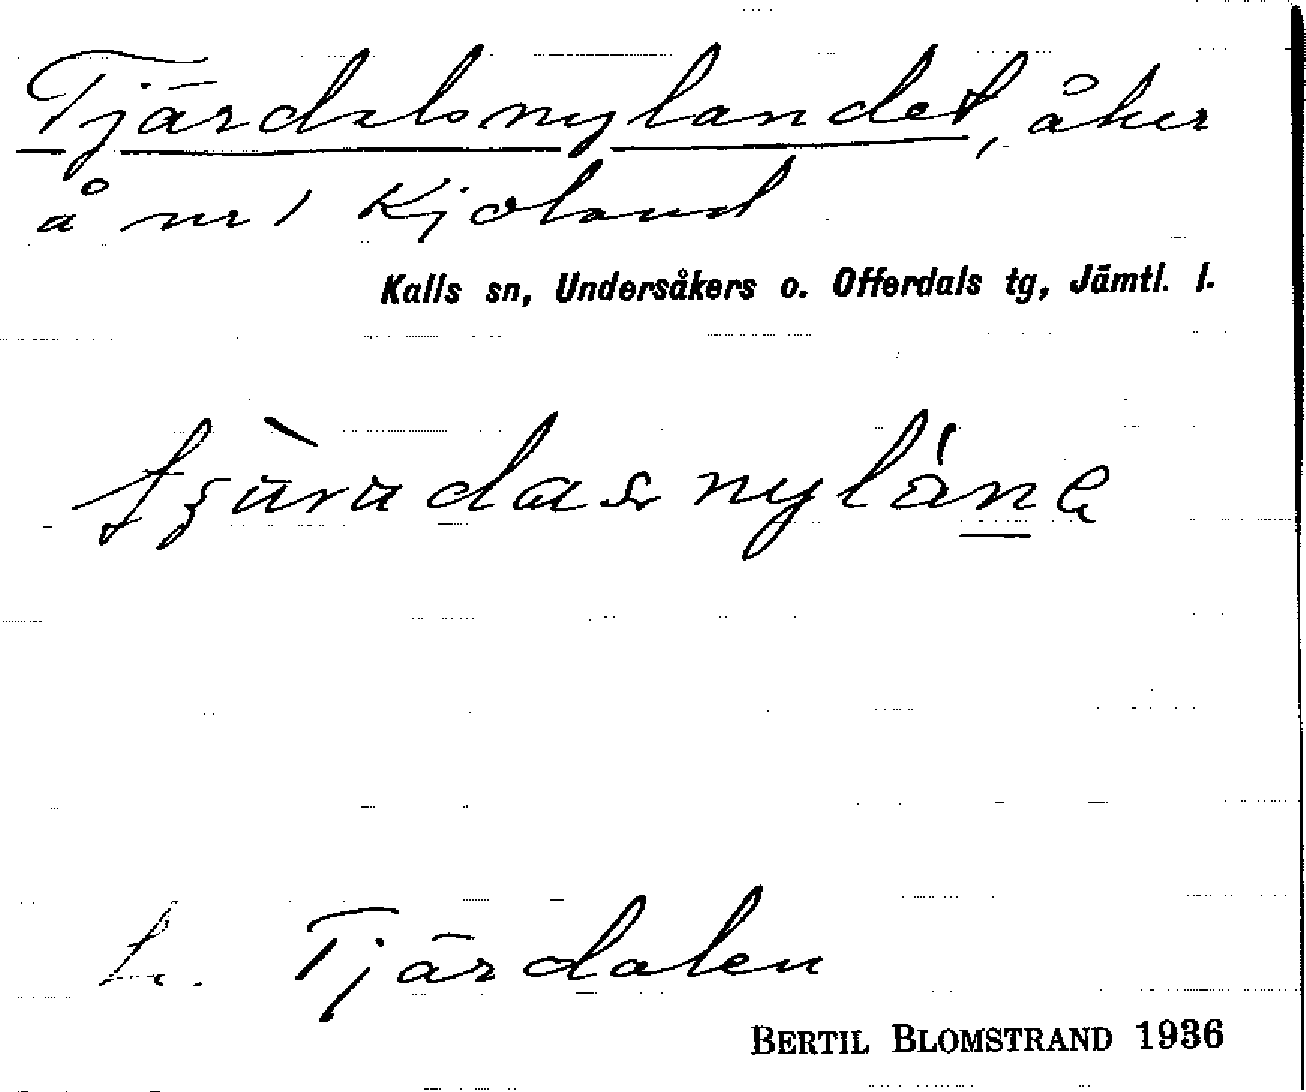 Tjärdalsnylandet, åker
å nr 1 Kjoland
Kalls sn, Undersåkers o. Offerdals tg, Jämtl. l.
Tjärdalen
BERTIL BLOMSTRAND 1936